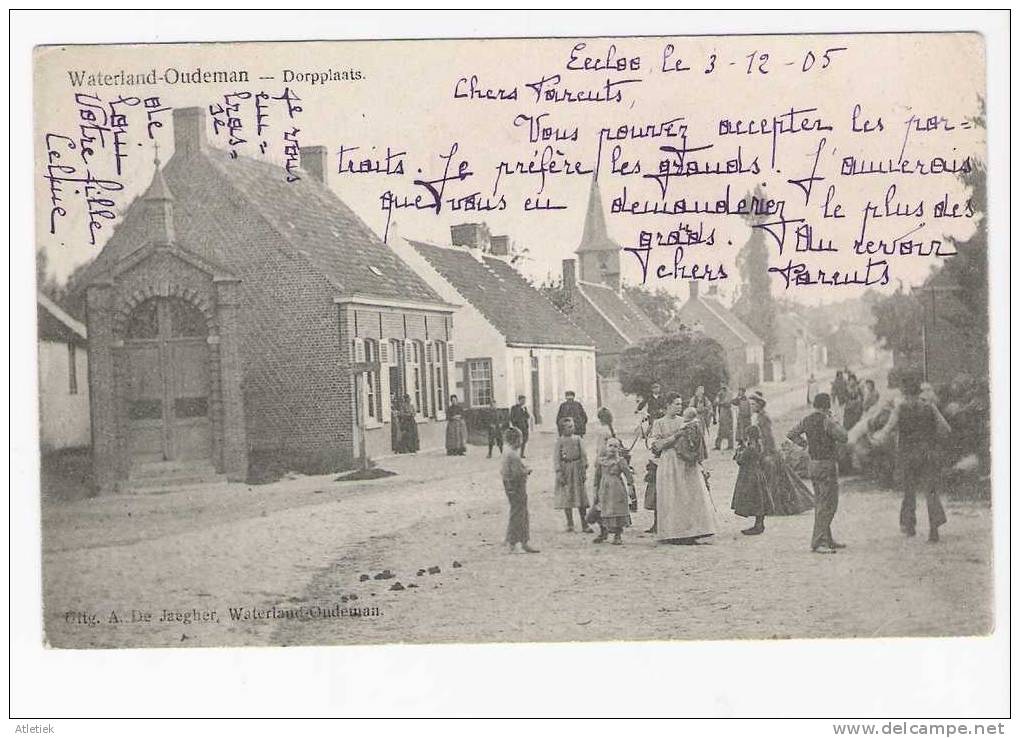 Waterland-Oudeman — Dorpplaats.
Eecloo, le 3-12-05
Chers Parents,
Vous pouvez accepter les por=
traits. Je préfère les grands! J'aimerais
que vous en demanderiez le plus des
grands. Au revoir
chers Parents
je vous
em=
bras=
se
Votre fille
Celine
Uitg. A. De Jaegher, Waterland-Oudeman.
Atletiek
www.delcampe.net